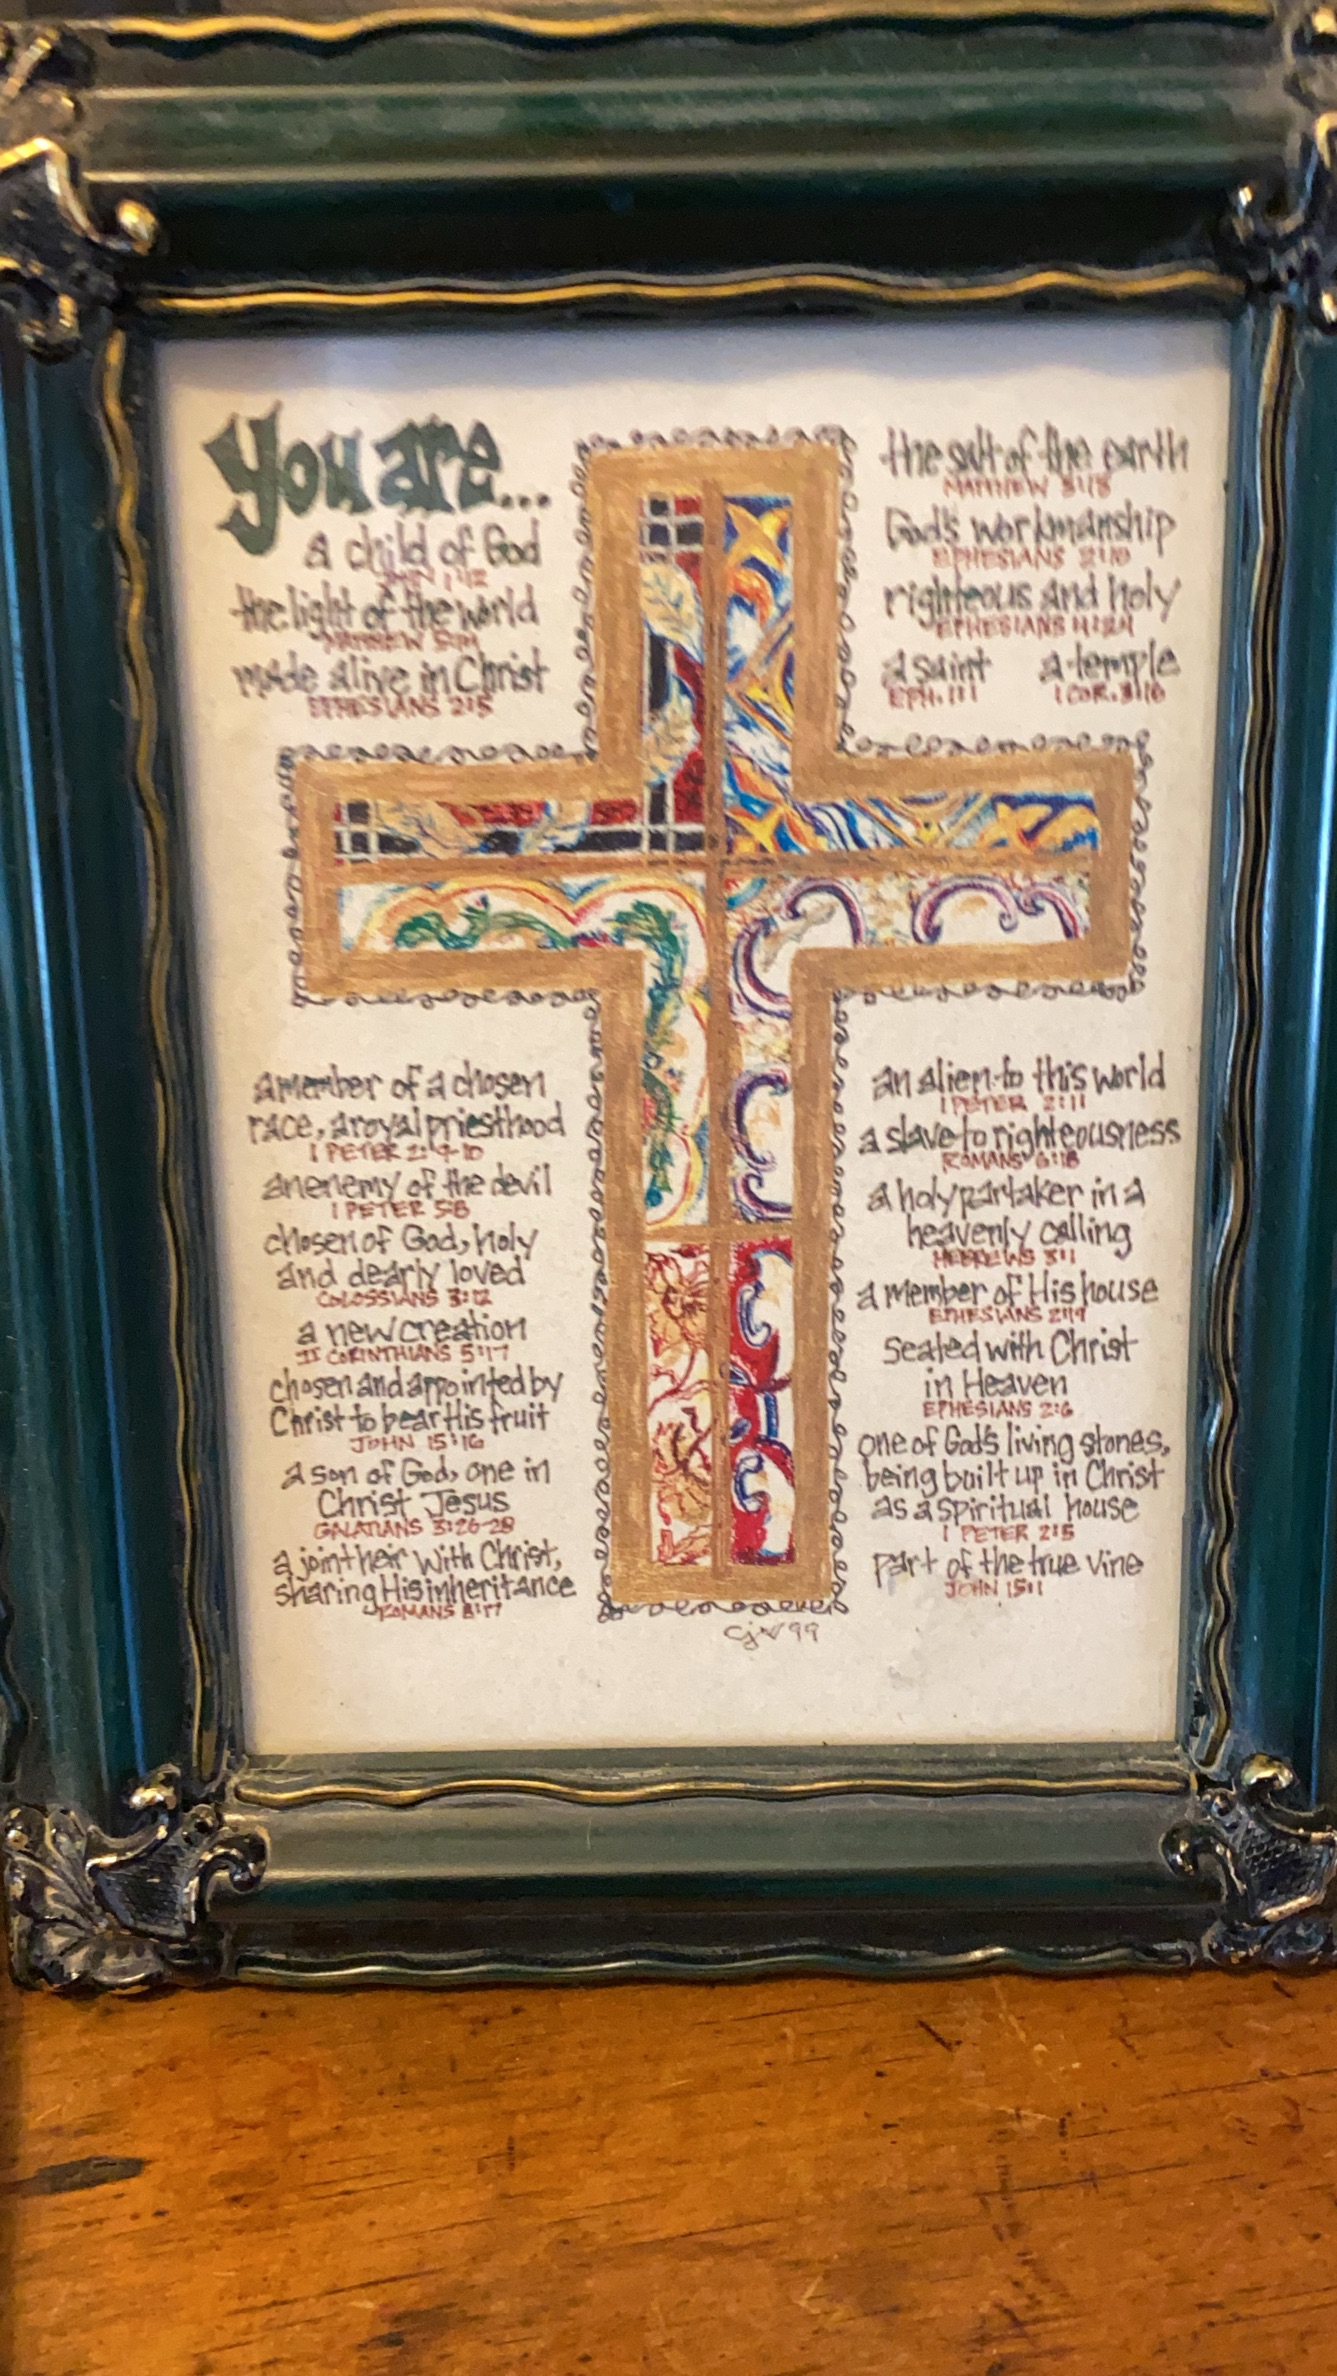 You are...
a child of God
JOHN 1:12
the light of the world
MATTHEW 5:14
made alive in Christ
EPHESIANS 2:5
the salt of the earth
MATTHEW 5:13
God's workmanship
EPHESIANS 2:10
righteous and holy
EPHESIANS 4:24
a saint a temple
EPH. 1:1 1 COR. 3:16
a member of a chosen
race, a royal priesthood
1 PETER 2:9-10
an enemy of the devil
1 PETER 5:8
chosen of God, holy
and dearly loved
COLOSSIANS 3:12
a new creation
II CORINTHIANS 5:17
chosen and appointed by
Christ to bear His fruit
JOHN 15:16
a son of God, one in
Christ Jesus
GALATIANS 3:26-28
a joint heir with Christ,
sharing His inheritance
ROMANS 8:17
an alien to this world
1 PETER 2:11
a slave to righteousness
ROMANS 6:18
a holy partaker in a
heavenly calling
HEBREWS 3:1
a member of His house
EPHESIANS 2:19
seated with Christ
in Heaven
EPHESIANS 2:6
one of God's living stones,
being built up in Christ
as a spiritual house
1 PETER 2:5
part of the true vine
JOHN 15:1
cjv 99